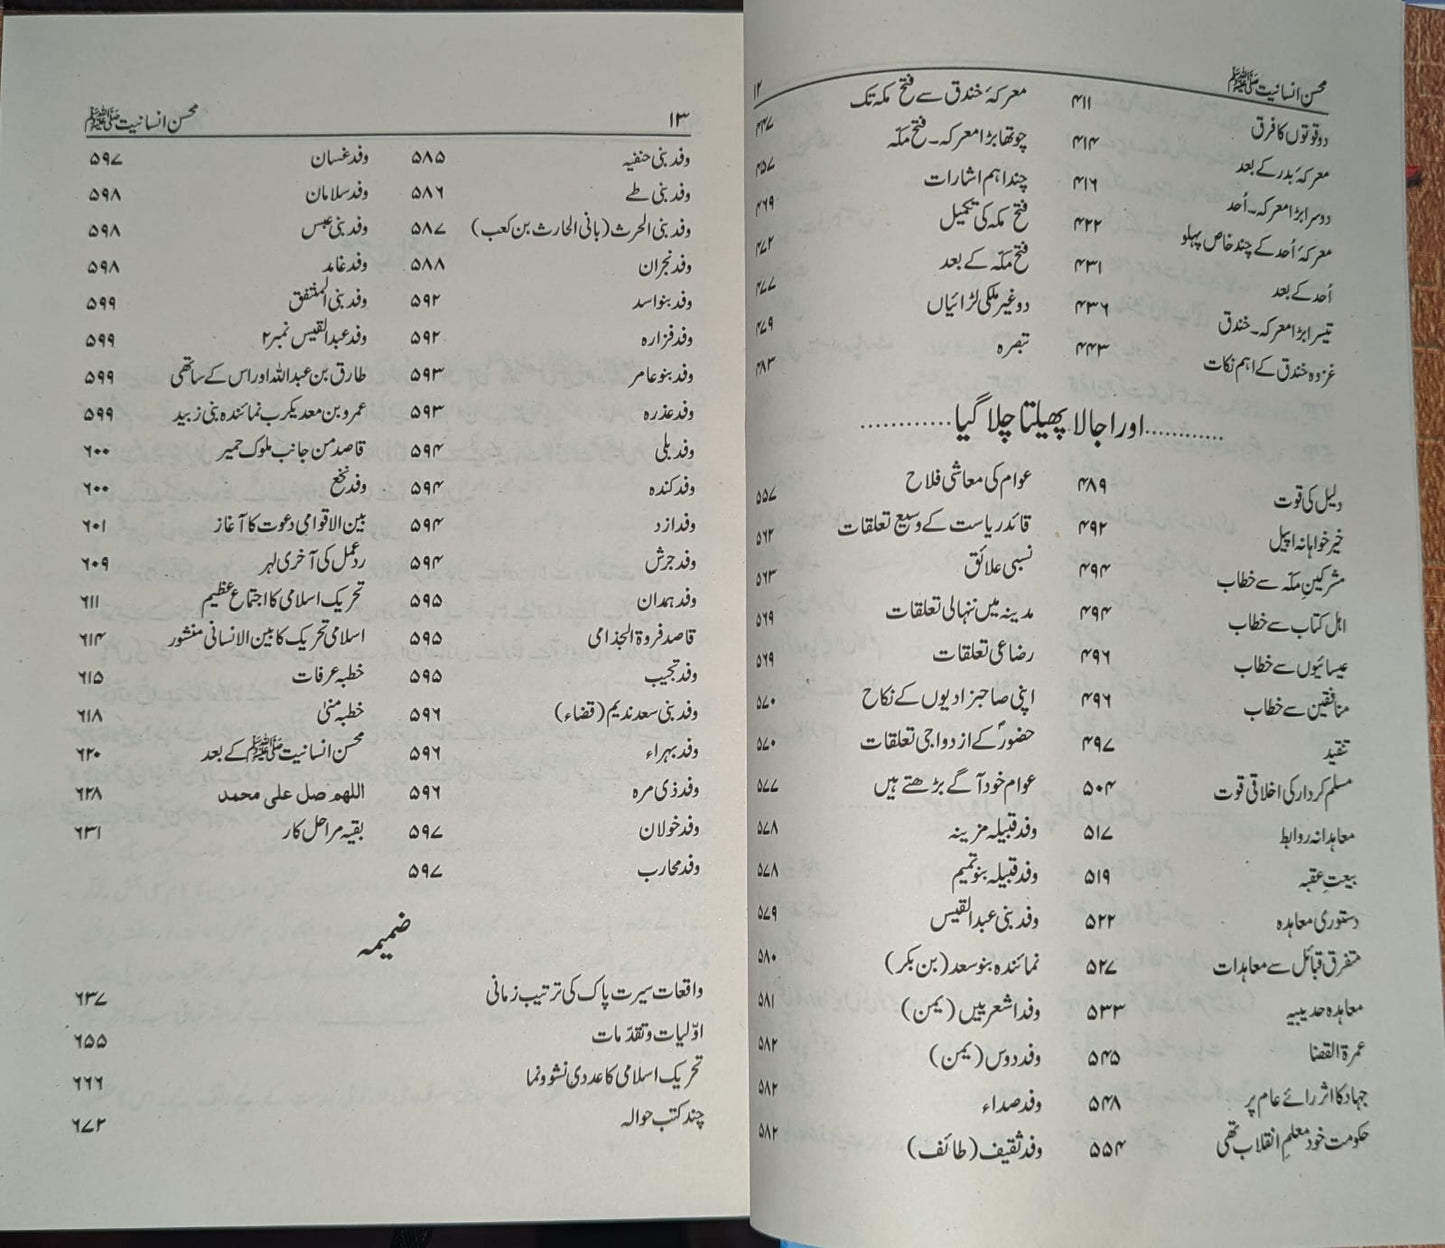 محسن انسانیت ﷺ ۱۲
دو قوتوں کا فرق ۴۱۱ معرکۂ خندق سے فتح مکہ تک ۴۴۷
معرکۂ بدر کے بعد ۴۱۴ چوتھا بڑا معرکہ۔ فتح مکّہ ۴۵۷
دوسرا بڑا معرکہ۔ اُحد ۴۱۶ چند اہم اشارات ۴۶۹
معرکۂ اُحد کے چند خاص پہلو ۴۲۲ فتح مکہ کی تکمیل ۴۷۲
اُحد کے بعد ۴۳۱ فتح مکّہ کے بعد ۴۷۷
تیسرا بڑا معرکہ۔ خندق ۴۳۶ دو غیر ملکی لڑائیاں ۴۷۹
غزوہ خندق کے اہم نکات ۴۴۳ تبصرہ ۴۸۳
............اور اجالا پھیلتا چلا گیا............
دلیل کی قوت ۴۸۹ عوام کی معاشی فلاح ۵۵۷
خیر خواہانہ اپیل ۴۹۲ قائد ریاست کے وسیع تعلقات ۵۶۲
مشرکینِ مکّہ سے خطاب ۴۹۴ نسبی علائق ۵۶۳
اہل کتاب سے خطاب ۴۹۴ مدینہ میں ننہالی تعلقات ۵۶۹
عیسائیوں سے خطاب ۴۹۶ رضاعی تعلقات ۵۶۹
منافقین سے خطاب ۴۹۶ اپنی صاحبزادیوں کے نکاح ۵۷۰
تنقید ۴۹۷ حضورؐ کے ازدواجی تعلقات ۵۷۰
مسلم کردار کی اخلاقی قوت ۵۰۴ عوام خود آگے بڑھتے ہیں ۵۷۷
معاہدانہ روابط ۵۱۷ وفد قبیلہ مزینہ ۵۷۸
بیعتِ عقبہ ۵۱۹ وفد قبیلہ بنو تمیم ۵۷۸
دستوری معاہدہ ۵۲۲ وفد بنی عبدالقیس ۵۷۹
متفرق قبائل سے معاہدات ۵۲۷ نمائندہ بنو سعد (بن بکر) ۵۸۰
معاہدہ حدیبیہ ۵۳۳ وفد اشعریین (یمن) ۵۸۱
عمرۃ القضا ۵۴۵ وفد دوس (یمن) ۵۸۲
جہاد کا اثر رائے عام پر ۵۴۸ وفد صداء ۵۸۲
حکومت خود معلمِ انقلاب تھی ۵۵۴ وفد ثقیف (طائف) ۵۸۲
۱۳ محسن انسانیت ﷺ
وفد بنی حنفیہ ۵۸۵ وفد غسان ۵۹۷
وفد بنی طے ۵۸۶ وفد سلامان ۵۹۸
وفد بنی الحرث (بانی الحارث بن کعب) ۵۸۷ وفد بنی عبس ۵۹۸
وفد نجران ۵۸۸ وفد غامد ۵۹۸
وفد بنو اسد ۵۹۲ وفد بنی المنتفق ۵۹۹
وفد فزارہ ۵۹۲ وفد عبدالقیس نمبر۲ ۵۹۹
وفد بنو عامر ۵۹۳ طارق بن عبداللہ اور اس کے ساتھی ۵۹۹
وفد عذرہ ۵۹۳ عمرو بن معدیکرب نمائندہ بنی زبید ۵۹۹
وفد بلی ۵۹۴ قاصد من جانب ملوک حمیر ۶۰۰
وفد کندہ ۵۹۴ وفد نخع ۶۰۰
وفد ازد ۵۹۴ بین الاقوامی دعوت کا آغاز ۶۰۱
وفد جرش ۵۹۴ ردِ عمل کی آخری لہر ۶۰۹
وفد ہمدان ۵۹۵ تحریک اسلامی کا اجتماع عظیم ۶۱۱
قاصد فروۃ الجذامی ۵۹۵ اسلامی تحریک کا بین الانسانی منشور ۶۱۴
وفد تجیب ۵۹۵ خطبہ عرفات ۶۱۵
وفد بنی سعد ندیم (قضاء) ۵۹۶ خطبہ منیٰ ۶۱۸
وفد بہراء ۵۹۶ محسن انسانیت ﷺ کے بعد ۶۲۰
وفد ذی مرہ ۵۹۶ اللھم صل علی محمد ۶۲۸
وفد خولان ۵۹۷ بقیہ مراحل کار ۶۳۱
وفد محارب ۵۹۷
ضمیمہ
واقعات سیرت پاک کی ترتیب زمانی ۶۳۷
اوّلیات و تقدّمات ۶۵۵
تحریک اسلامی کا عددی نشوونما ۶۶۶
چند کتب حوالہ ۶۷۲